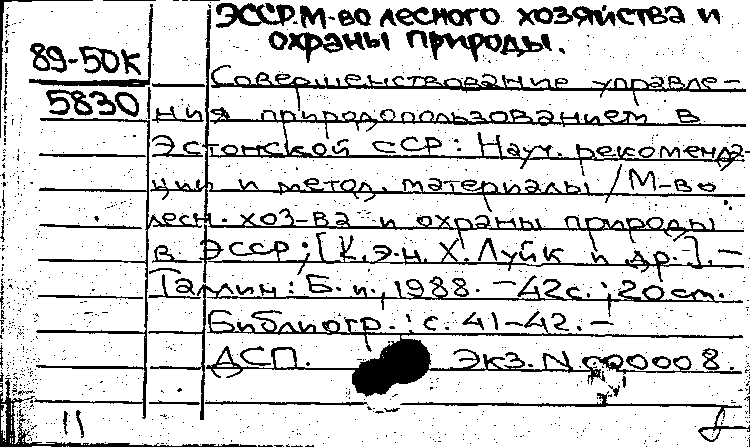 ЭССР. М-во лесного хозяйства и
охраны природы.
89-50К
5830
Совершенствование управле-
ния природопользованием в
Эстонской ССР: Науч. рекоменда-
ции и метод. материалы / М-во
лесн. хоз-ва и охраны природы
в ЭССР; [К.э.н. Х. Луйк и др.]. -
Таллин: Б.и., 1988. - 42с.; 20 ст.
Библиогр.: с. 41-42. -
ДСП. Экз. N 000008.
11